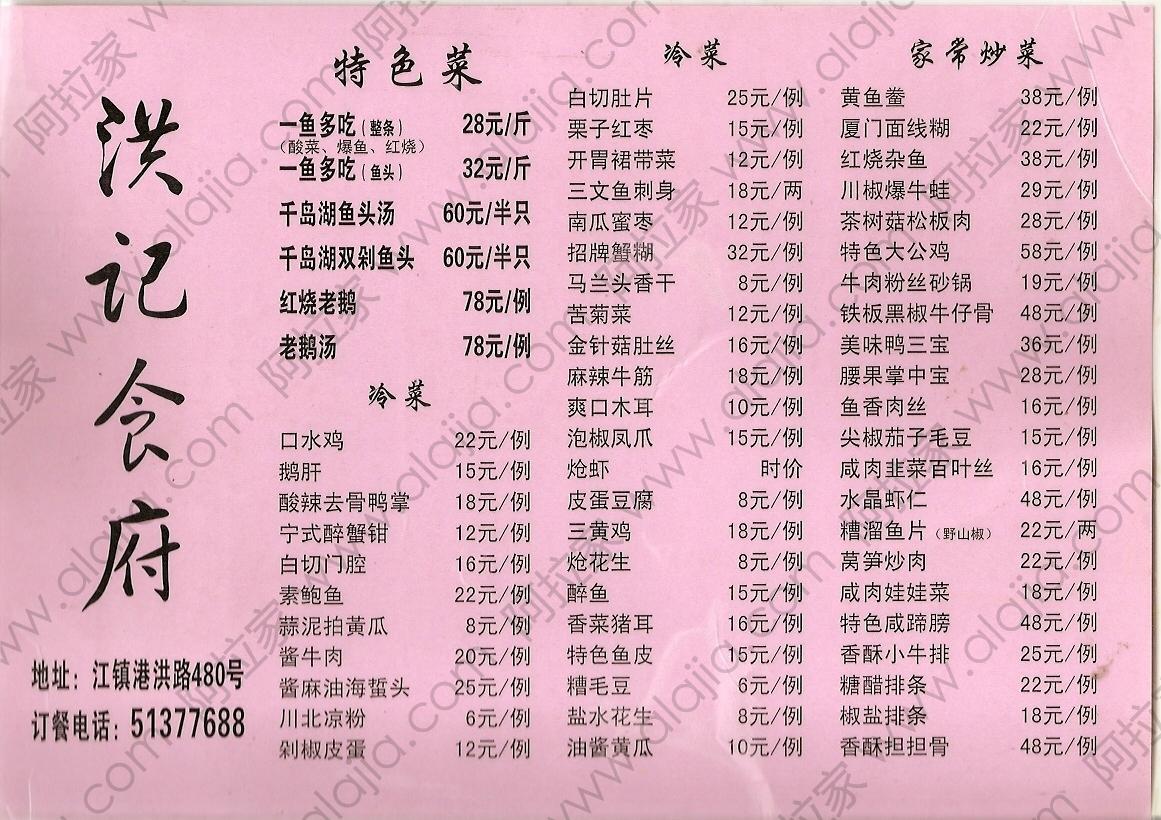 洪记食府
地址：江镇港洪路480号
订餐电话：51377688
特色菜
一鱼多吃（整条） 28元/斤
（酸菜、爆鱼、红烧）
一鱼多吃（鱼头） 32元/斤
千岛湖鱼头汤 60元/半只
千岛湖双剁鱼头 60元/半只
红烧老鹅 78元/例
老鹅汤 78元/例
冷菜
口水鸡 22元/例
鹅肝 15元/例
酸辣去骨鸭掌 18元/例
宁式醉蟹钳 12元/例
白切门腔 16元/例
素鲍鱼 22元/例
蒜泥拍黄瓜 8元/例
酱牛肉 20元/例
酱麻油海蜇头 25元/例
川北凉粉 6元/例
剁椒皮蛋 12元/例
冷菜
白切肚片 25元/例
栗子红枣 15元/例
开胃裙带菜 12元/例
三文鱼刺身 18元/两
南瓜蜜枣 12元/例
招牌蟹糊 32元/例
马兰头香干 8元/例
苦菊菜 12元/例
金针菇肚丝 16元/例
麻辣牛筋 18元/例
爽口木耳 10元/例
泡椒凤爪 15元/例
炝虾 时价
皮蛋豆腐 8元/例
三黄鸡 18元/例
炝花生 8元/例
醉鱼 15元/例
香菜猪耳 16元/例
特色鱼皮 15元/例
糟毛豆 6元/例
盐水花生 8元/例
油酱黄瓜 10元/例
家常炒菜
黄鱼鲞 38元/例
厦门面线糊 22元/例
红烧杂鱼 38元/例
川椒爆牛蛙 29元/例
茶树菇松板肉 28元/例
特色大公鸡 58元/例
牛肉粉丝砂锅 19元/例
铁板黑椒牛仔骨 48元/例
美味鸭三宝 36元/例
腰果掌中宝 28元/例
鱼香肉丝 16元/例
尖椒茄子毛豆 15元/例
咸肉韭菜百叶丝 16元/例
水晶虾仁 48元/例
糟溜鱼片（野山椒） 22元/两
莴笋炒肉 22元/例
咸肉娃娃菜 18元/例
特色咸蹄膀 48元/例
香酥小牛排 25元/例
糖醋排条 22元/例
椒盐排条 18元/例
香酥担担骨 48元/例
阿拉家 www.alajia.com